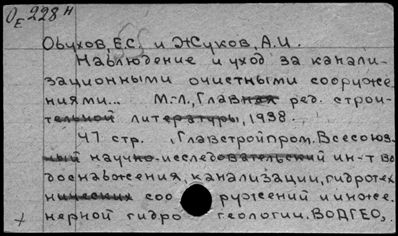 О 228 н
Е
Обухов, Е.С. и Жуков, А.И.
Наблюдение и уход за канали-
зационными очистными сооруже-
ниями... М.-Л., Главная ред. строи-
тельной литературы, 1938.
47 стр. , Главстройпром. Всесоюз-
ный научно-исследовательский ин-т Во
доснабжения, канализации, гидротех
нических соо ружений и инже.
нерной гидро геологии. ВОДГЕО,
+